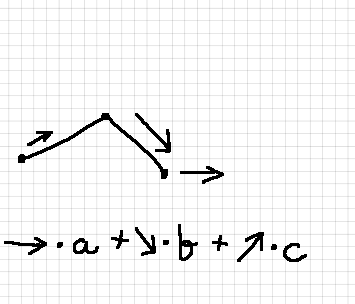 → · a + ↘ · b + ↗ · c